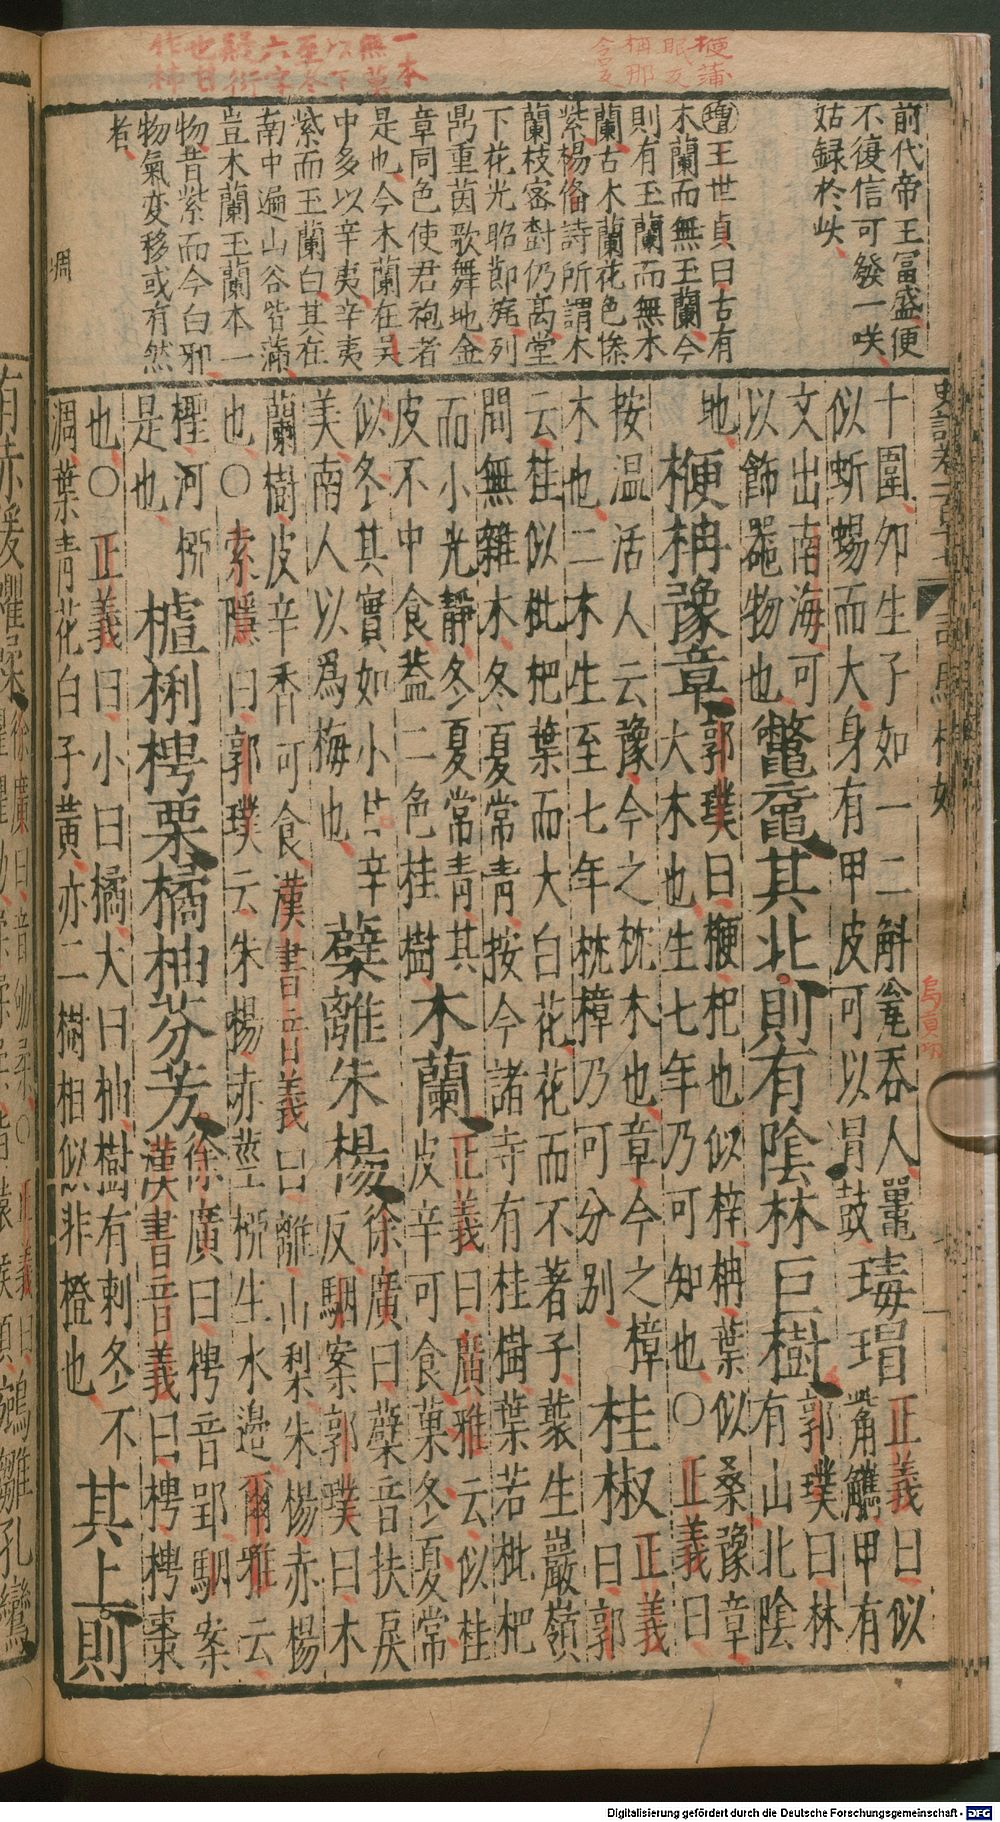 楩蒲
眠反
枏那
含反
一本
無葉
以下
至冬
六字
疑衍
也甘
作柿
前代帝王冨盛便
不復信可發一咲
姑録於此
增王世貞曰古有
木蘭而無玉蘭今
則有玉蘭而無木
蘭古木蘭花色慘
紫楊脩詩所謂木
蘭枝密對仍髙堂
下花光昭節旄列
舄重茵歌舞地金
章同色使君袍者
是也今木蘭在吴
中多以辛夷辛夷
紫而玉蘭白其在
南中遍山谷皆滿
豈木蘭玉蘭本一
物昔紫而今白邪
物氣変移或有然
者
凋
烏貢反
十圍夘生子如一二斛瓮吞人鼉
似蜥蜴而大身有甲皮可以冒鼓
瑇瑁
正義曰似
觜觿甲有
文出南海可
以飾噐物也
鼈黿其北則有陰林巨樹
郭璞曰林
有山北陰
地
楩枏豫章
郭璞曰楩杞也似梓枏葉似桑豫章
大木也生七年乃可知也○正義曰
按温活人云豫今之枕木也章今之樟
木也二木生至七年枕樟乃可分别
桂椒
正義
曰郭
云桂似枇杷葉而大白花花而不著子藂生巖嶺
間無雜木冬夏常青按今諸寺有桂樹葉若枇杷
而小光靜冬夏常青其
皮不中食葢二色桂樹
木蘭
正義曰廣雅云似桂
皮辛可食菓冬夏常
似冬其實如小甘辛
美南人以爲梅也
蘗離朱楊
徐廣曰蘗音扶戾
反駰案郭璞曰木
蘭樹皮辛香可食漢書音義曰離山梨朱楊赤楊
也○索隱曰郭璞云朱楊赤莖桺生水邉爾雅云
檉河桺
是也
樝梸梬栗橘柚芬芳
徐廣曰梬音郢駰案
漢書音義曰梬梬棗
也○正義曰小曰橘大曰柚樹有刺冬不
凋葉青花白子黄亦二樹相似非橙也
其上則
Digitalisierung gefördert durch die Deutsche Forschungsgemeinschaft - DFG